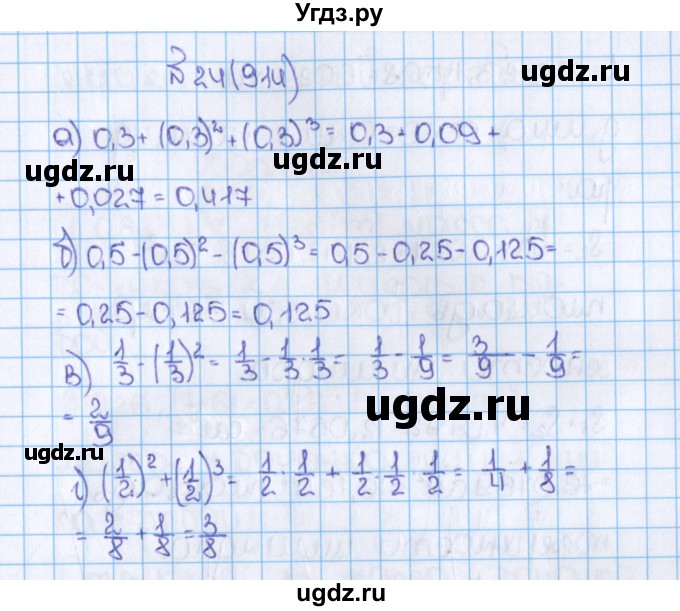 Угдз.ру
№ 24(914)
ugdz.ru
а) 0,3 + (0,3)² + (0,3)³ = 0,3 + 0,09 +
ugdz.ru
ugdz.ru
+ 0,027 = 0,417
б) 0,5 - (0,5)² - (0,5)³ = 0,5 - 0,25 - 0,125 =
= 0,25 - 0,125 = 0,125
в) 1/3 - (1/3)² = 1/3 - 1/3 · 1/3 = 1/3 - 1/9 = 3/9 - 1/9 =
ugdz.ru
= 2/9
ugdz.ru
г) (1/2)² + (1/2)³ = 1/2 · 1/2 + 1/2 · 1/2 · 1/2 = 1/4 + 1/8 =
ugdz.ru
= 2/8 + 1/8 = 3/8
ugdz.ru
ugdz.ru